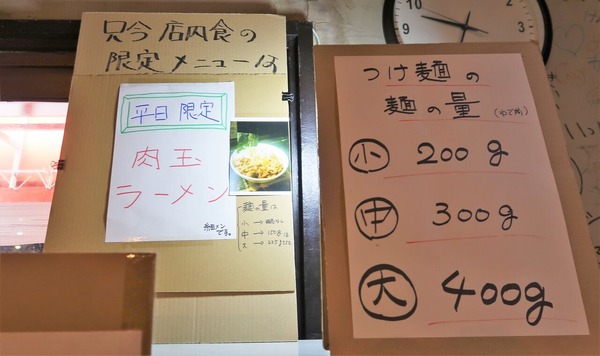 只今店内食の
限定メニューは
平日限定
肉玉
ラーメン
細メン
です。
麺の量は
小→
中→150g
大→225g
つけ麺の
麺の量(ゆで前)
小 200g
中 300g
大 400g